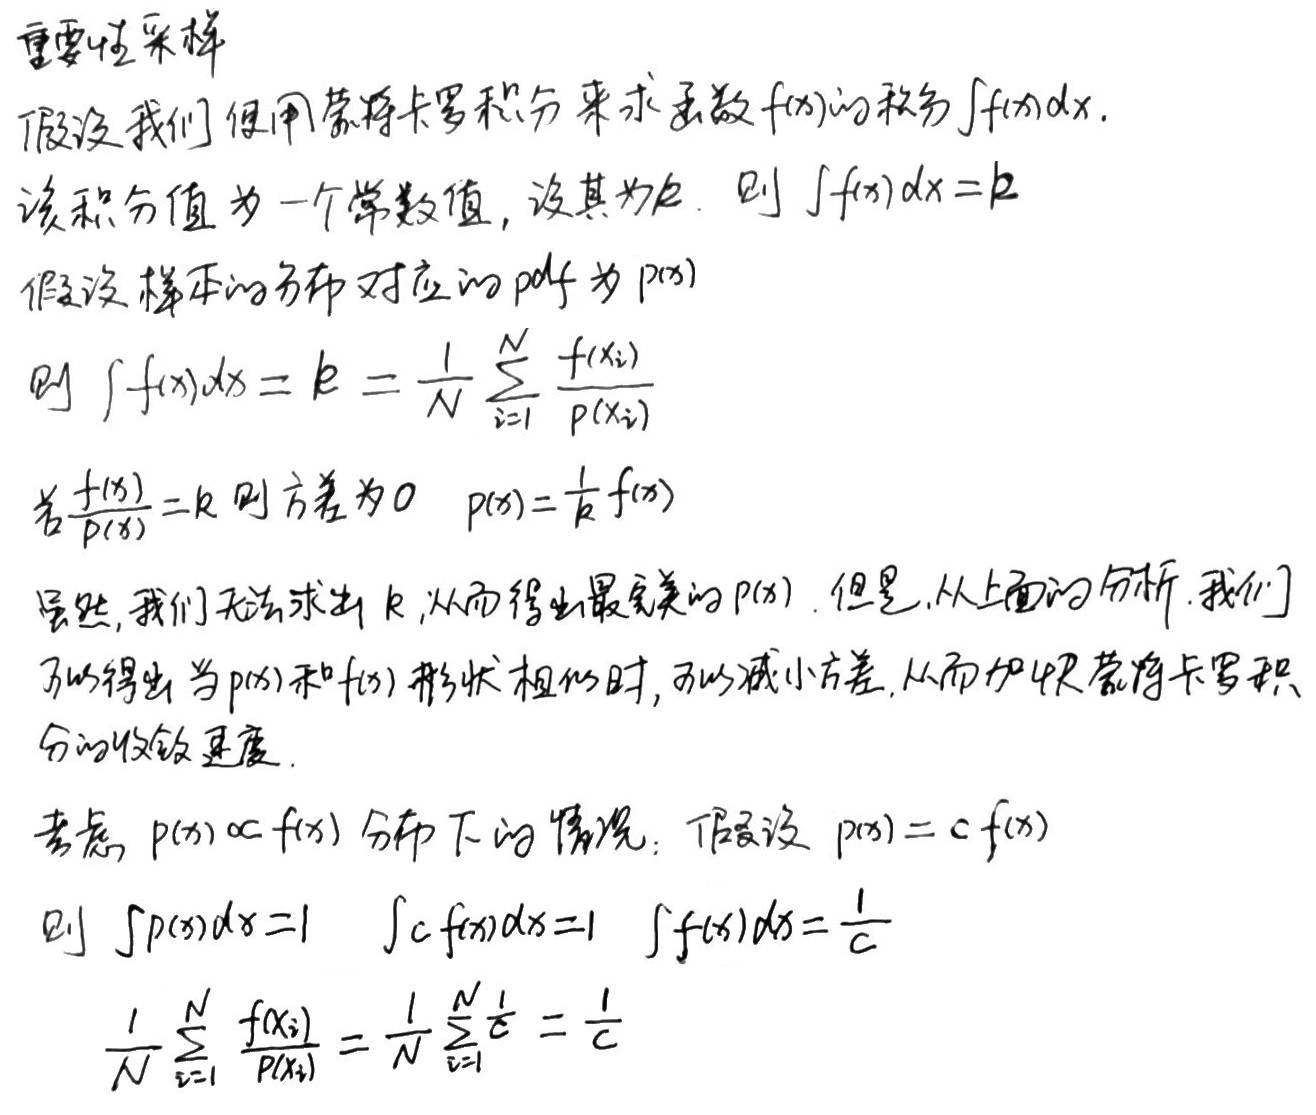 重要性采样
假设我们使用蒙特卡罗积分来求函数f(x)的积分∫f(x)dx.
该积分值为一个常数值,设其为k. 则 ∫f(x)dx=k
假设样本的分布对应的pdf为p(x)
则 ∫f(x)dx = k = \frac{1}{N} \sum_{i=1}^{N} \frac{f(x_i)}{p(x_i)}
若 \frac{f(x)}{p(x)} = k 则方差为0 p(x) = \frac{1}{k} f(x)
虽然,我们无法求出k,从而得出最完美的p(x).但是,从上面的分析.我们
可以得出当p(x)和f(x)形状相似时,可以减小方差,从而加快蒙特卡罗积
分的收敛速度.
考虑 p(x) ∝ f(x) 分布下的情况: 假设 p(x) = c f(x)
则 ∫p(x)dx=1 ∫c f(x)dx=1 ∫f(x)dx = \frac{1}{c}
\frac{1}{N} \sum_{i=1}^{N} \frac{f(x_i)}{p(x_i)} = \frac{1}{N} \sum_{i=1}^{N} \frac{1}{c} = \frac{1}{c}